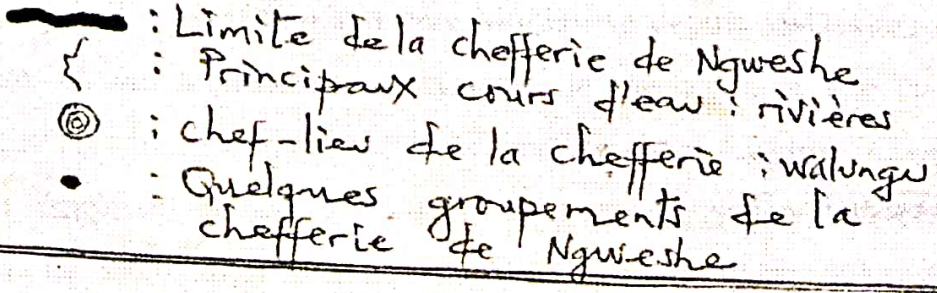 : Limite de la chefferie de Ngweshe
: Principaux cours d'eau : rivières
: chef-lieu de la chefferie : walungu
: Quelques groupements de la
chefferie de Ngweshe